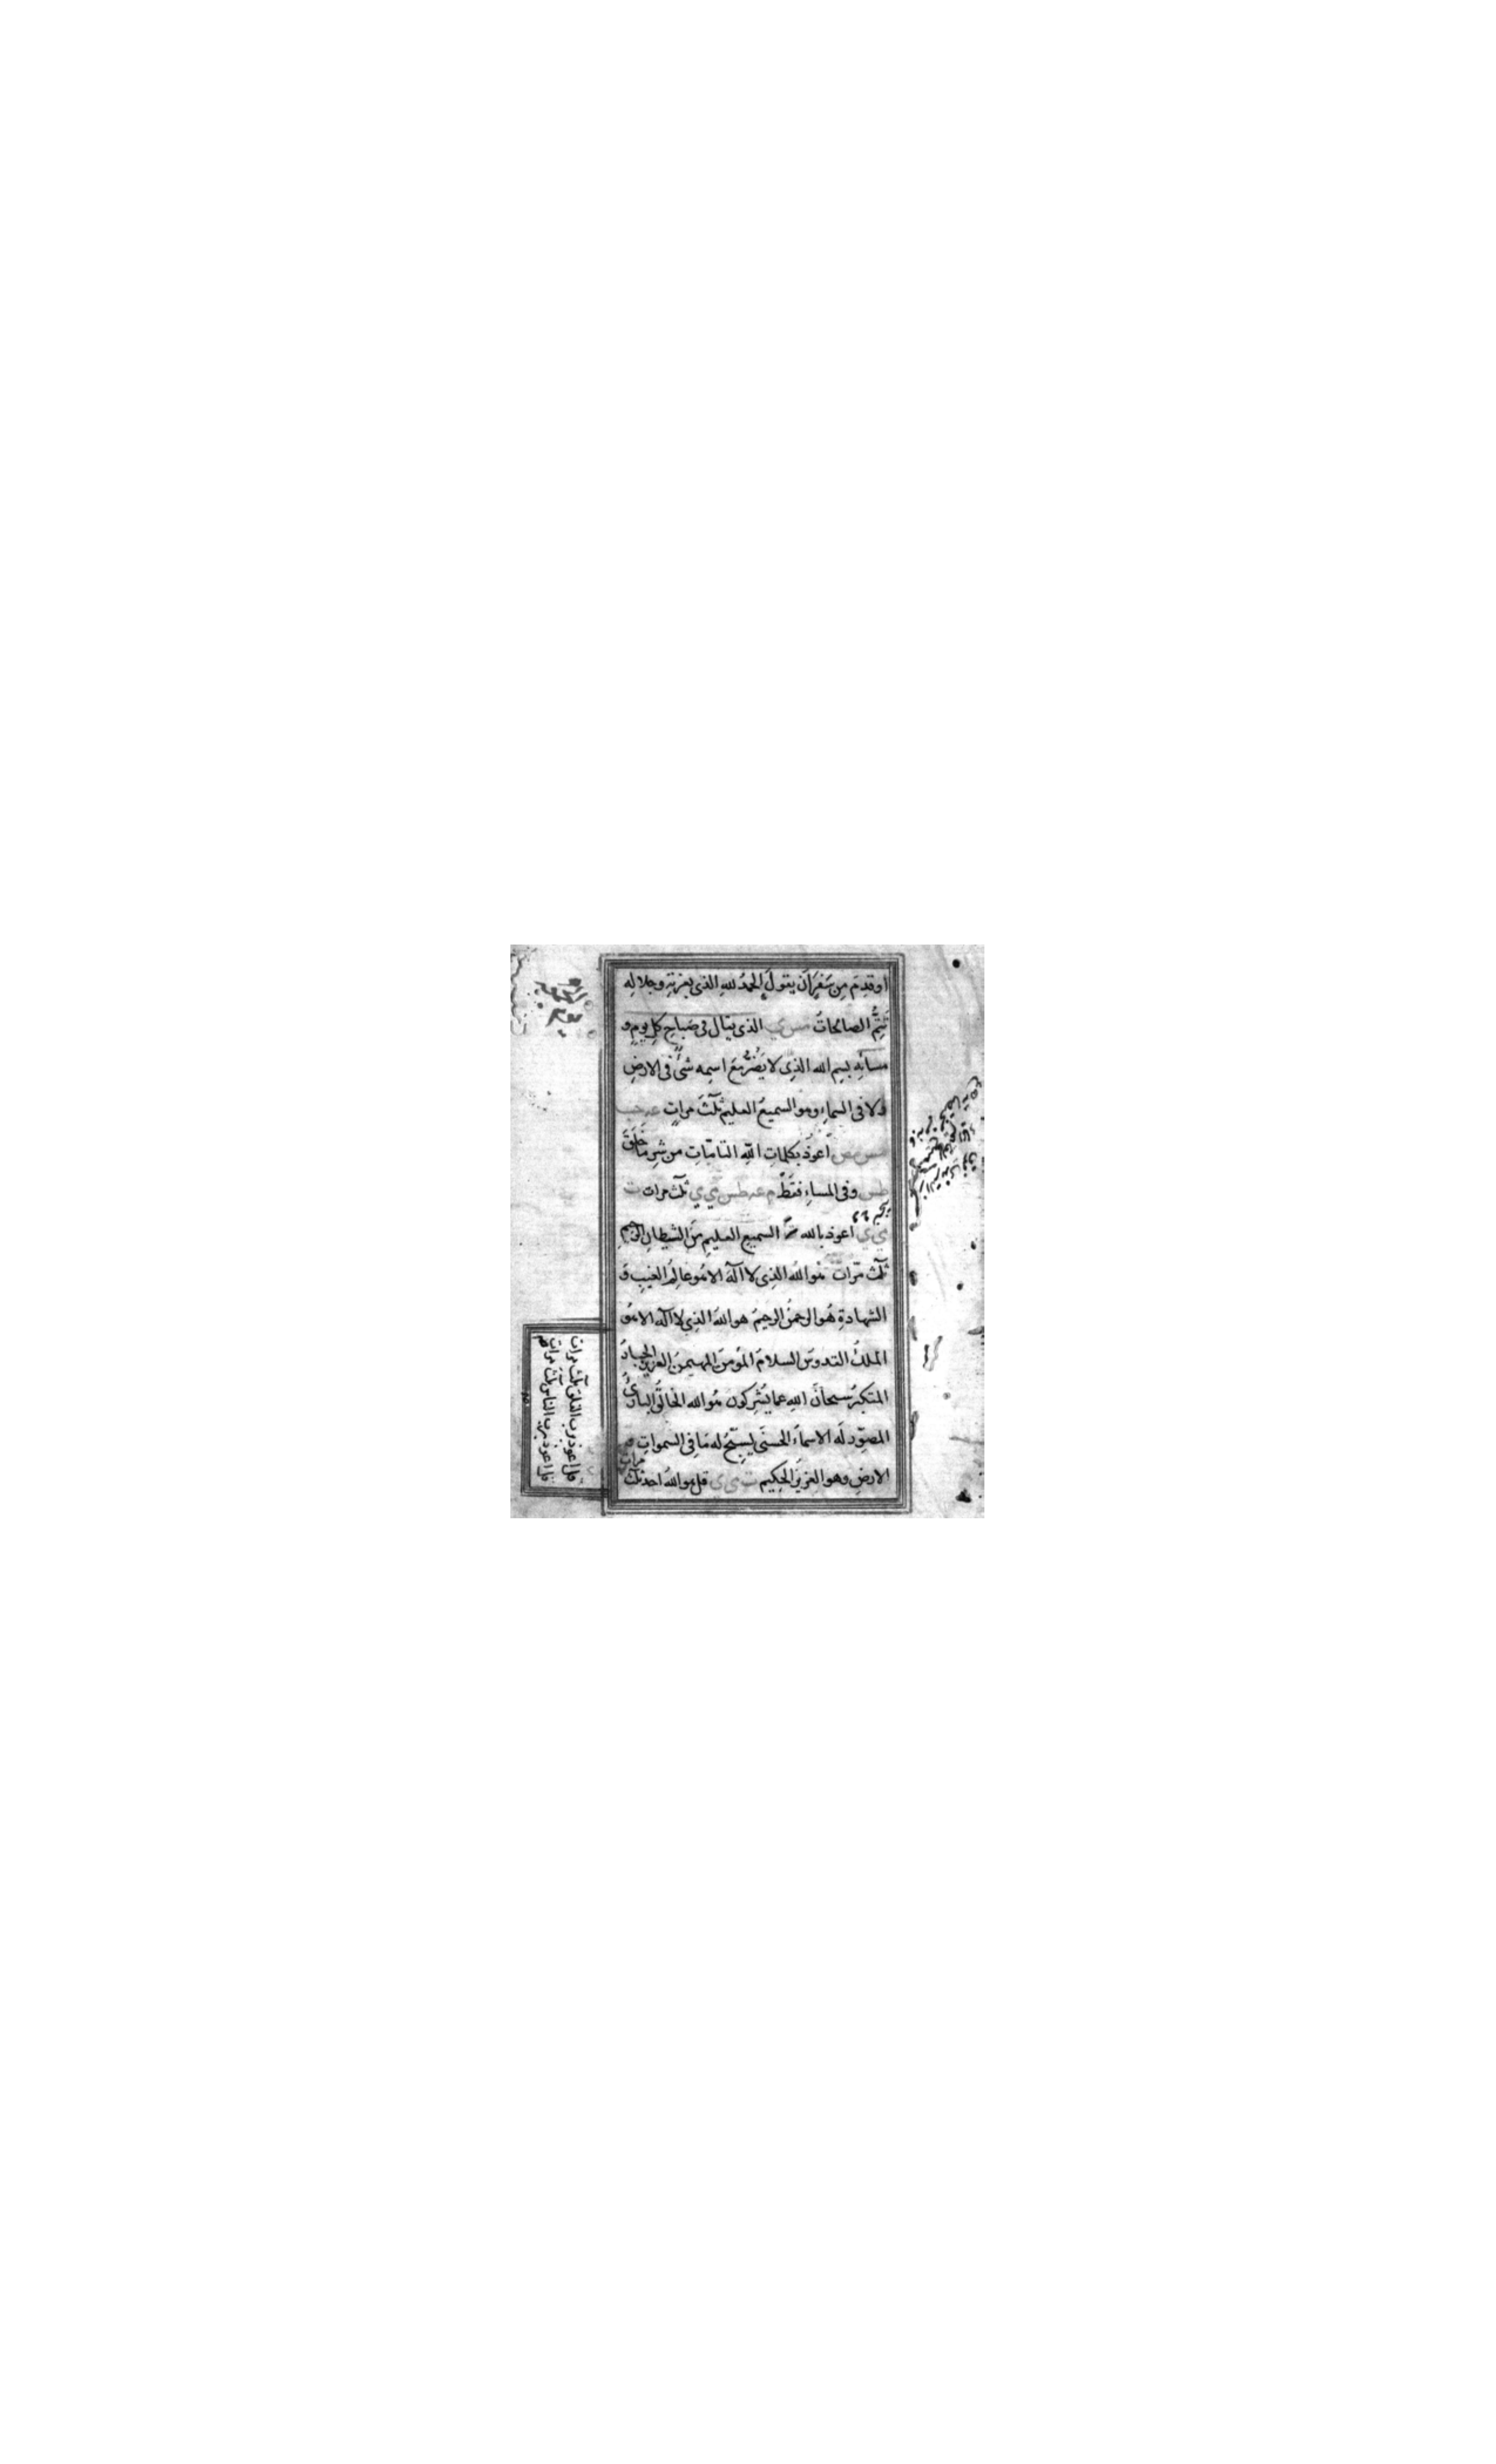 او قدِمَ مِن سَفَرٍ اَن يقولَ الحمدُ للهِ الذى بعزتِهِ وجلالِه
تَتِمُّ الصالحاتُ مس ى الذى يقال فى صَباحِ كلِ يومٍ و
مسائِهِ بسمِ الله الذِى لا يَضُرُّ مَعَ اسمِه شئٌ فى الارضِ
ولا فى السماءِ وهو السميعُ العليم ثلٰثَ مراتٍ عه حب
مس مص اعوذُ بكلماتِ اللّهِ التامّاتِ من شرِ ما خَلَقَ
طس وفى المساءِ فقَطْ م عه طس مى ى ثلٰث مرات ت
مى ى اعوذ بالله السميع العليمِ مِنَ الشيطانِ الرجيمِ
ثلٰث مرّات هُو اللهُ الذِى لا اله الا هُو عالِمُ الغيبِ وَ
الشهادةِ هُو الرحمنُ الرحيمُ هو اللهُ الذِى لا اله الا هُو
الملكُ القدوسُ السلامُ المؤمنُ المهيمنُ العزيزُ الجبارُ
المتكبرُ سبحانَ اللهِ عما يُشرِكون هُو الله الخالقُ البارئُ
المصوّر له الاسماءُ الحسنَى يُسبّحُ له مَا فِى السمواتِ و
الارضِ وهو العزيزُ الحكيم ت مى ى قل هو اللهُ احد ثلٰث مراتٍ
قل اعوذ برب الفلق ثلٰث مرات
قل اعوذ برب الناس ثلٰث مرات